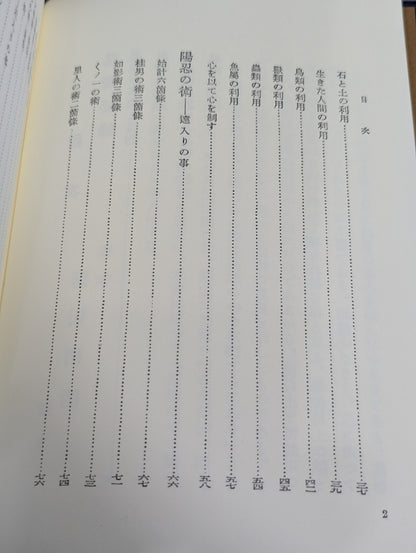 目次
石と土の利用……三七
生きた人間の利用……三九
鳥類の利用……四二
獣類の利用……四五
蟲類の利用……五四
魚屬の利用……五七
心を以て心を制す……五八
陽忍の術――遠入りの事
始計六箇條……六六
桂男の術三箇條……六七
如影術三箇條……七一
くノ一の術……七三
里人の術二箇條……七四
七六
2